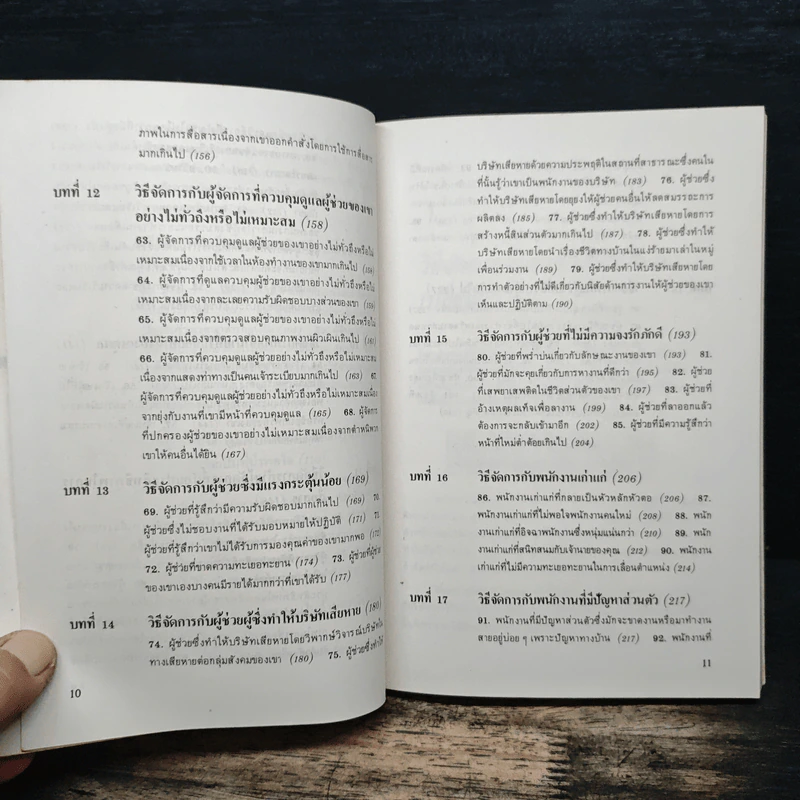 ภาพในการสื่อสารเนื่องจากเขาออกคำสั่งโดยการใช้การสื่อสาร
มากเกินไป (156)
บทที่ 12 วิธีจัดการกับผู้จัดการที่ควบคุมดูแลผู้ช่วยของเขา
อย่างไม่ทั่วถึงหรือไม่เหมาะสม (158)
63. ผู้จัดการที่ควบคุมดูแลผู้ช่วยของเขาอย่างไม่ทั่วถึงหรือไม่
เหมาะสมเนื่องจากใช้เวลาในห้องทำงานของเขามากเกินไป (158)
64. ผู้จัดการที่ดูแลควบคุมผู้ช่วยของเขาอย่างไม่ทั่วถึงหรือไม่
เหมาะสมเนื่องจากละเลยความรับผิดชอบบางส่วนของเขา (159)
65. ผู้จัดการที่ควบคุมดูแลผู้ช่วยของเขาอย่างไม่ทั่วถึงหรือไม่
เหมาะสมเนื่องจากตรวจสอบคุณภาพงานผิวเผินเกินไป
66. ผู้จัดการที่ควบคุมดูแลผู้ช่วยอย่างไม่ทั่วถึงหรือไม่เหมาะสม
เนื่องจากแสดงท่าทางเป็นคนเจ้าระเบียบมากเกินไป (163) 67.
ผู้จัดการที่ควบคุมดูแลผู้ช่วยอย่างไม่ทั่วถึงหรือไม่เหมาะสมเนื่อง
จากยุ่งกับงานที่เขามีหน้าที่ควบคุมดูแล (165) 68. ผู้จัดการ
ที่ปกครองผู้ช่วยของเขาอย่างไม่เหมาะสมเนื่องจากตำหนิพวก
เขาให้คนอื่นได้ยิน (167)
บทที่ 13 วิธีจัดการกับผู้ช่วยซึ่งมีแรงกระตุ้นน้อย (169)
69. ผู้ช่วยที่รู้สึกว่ามีความรับผิดชอบมากเกินไป (169) 70.
ผู้ช่วยซึ่งไม่ชอบงานที่ได้รับมอบหมายให้ปฏิบัติ (171) 71.
ผู้ช่วยที่รู้สึกว่าเขาไม่ได้รับการมองคุณค่าของเขามากพอ (172)
72. ผู้ช่วยที่ขาดความทะเยอทะยาน (174) 73. ผู้ช่วยที่ผู้ช่วย
ของเขาเองบางคนมีรายได้มากกว่าที่เขาได้รับ (177)
บทที่ 14 วิธีจัดการกับผู้ช่วยผู้ซึ่งทำให้บริษัทเสียหาย (180)
74. ผู้ช่วยซึ่งทำให้บริษัทเสียหายโดยวิพากษ์วิจารณ์บริษัทใน
ทางเสียหายต่อกลุ่มสังคมของเขา (180) 75. ผู้ช่วยซึ่งทำให้
10
บริษัทเสียหายด้วยความประพฤติในสถานที่สาธารณะซึ่งคนใน
ที่นั้นรู้ว่าเขาเป็นพนักงานของบริษัท (183) 76. ผู้ช่วยซึ่ง
ทำให้บริษัทเสียหายโดยยุยงให้ผู้ช่วยคนอื่นให้ลดสมรรถะการ
ผลิตลง (185) 77. ผู้ช่วยซึ่งทำให้บริษัทเสียหายโดยการ
สร้างหนี้สินส่วนตัวมากเกินไป (187) 78. ผู้ช่วยซึ่งทำให้
บริษัทเสียหายโดยนำเรื่องชีวิตทางบ้านในแง่ร้ายมาเล่าในหมู่
เพื่อนร่วมงาน (189) 79. ผู้ช่วยซึ่งทำให้บริษัทเสียหายโดย
การทำตัวอย่างที่ไม่ดีเกี่ยวกับนิสัยด้านการงานให้ผู้ช่วยของเขา
เห็นและปฏิบัติตาม (190)
บทที่ 15 วิธีจัดการกับผู้ช่วยที่ไม่มีความจงรักภักดี (193)
80. ผู้ช่วยที่พร่ำบ่นเกี่ยวกับลักษณะงานของเขา (193) 81.
ผู้ช่วยที่มักจะคุยเกี่ยวกับการหางานที่ดีกว่า (195) 82. ผู้ช่วย
ที่เสพยาเสพติดในชีวิตส่วนตัวของเขา (197) 83. ผู้ช่วยที่
อ้างเหตุผลเท็จเพื่อลางาน (199) 84. ผู้ช่วยที่ลาออกแล้ว
ต้องการจะกลับเข้ามาอีก (202) 85. ผู้ช่วยที่มีความรู้สึกว่า
หน้าที่ใหม่ต่ำต้อยเกินไป (204)
บทที่ 16 วิธีจัดการกับพนักงานเก่าแก่ (206)
86. พนักงานเก่าแก่ที่กลายเป็นหัวหลักหัวตอ (206) 87.
พนักงานเก่าแก่ที่ไม่พอใจพนักงานคนใหม่ (208) 88. พนัก
งานเก่าแก่ที่อิจฉาพนักงานซึ่งหนุ่มแน่นกว่า (210) 89. พนัก
งานเก่าแก่ที่สนิทสนมกับเจ้านายของคุณ (212) 90. พนักงาน
เก่าแก่ที่ไม่มีความทะเยอทะยานในการเลื่อนตำแหน่ง (214)
บทที่ 17 วิธีจัดการกับพนักงานที่มีปัญหาส่วนตัว (217)
91. พนักงานที่มีปัญหาส่วนตัวซึ่งมักจะขาดงานหรือมาทำงาน
สายอยู่บ่อย ๆ เพราะปัญหาทางบ้าน (217) 92. พนักงานที่
11